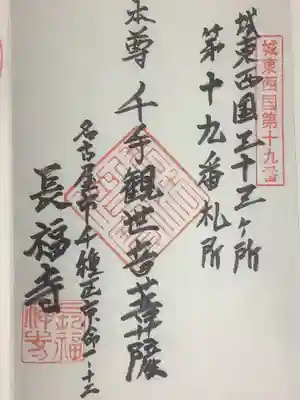 城東西国第十九番
城東西国三十三ヶ所
第十九番札所
本尊 千手観世音菩薩
名古屋市千種区
長福寺